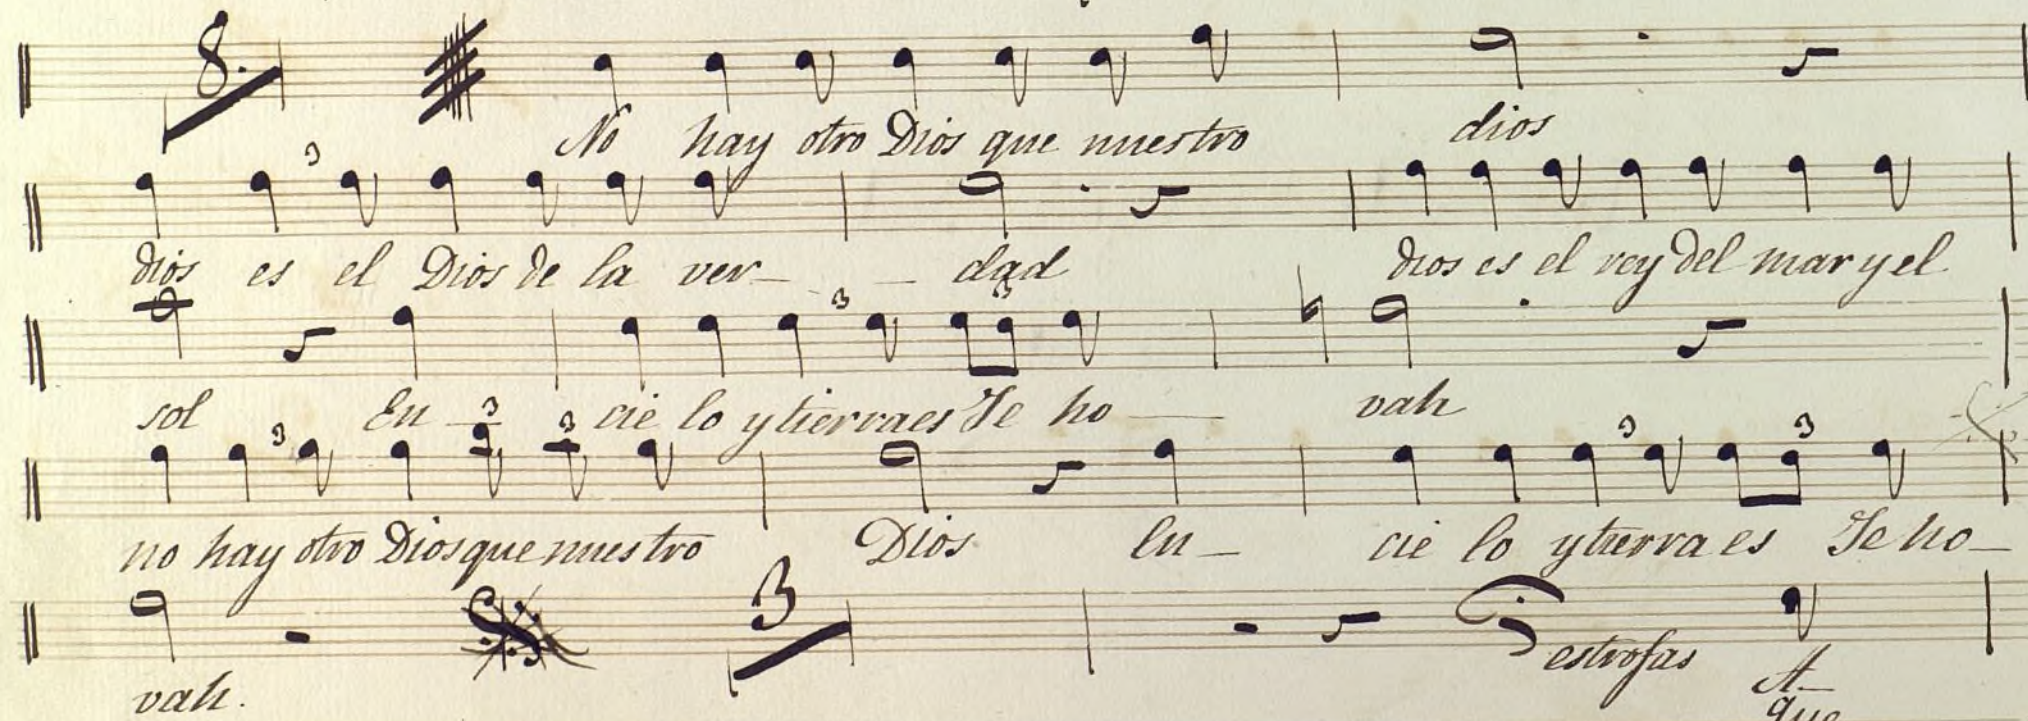 8.
No hay otro Dios que nuestro dios
3
dios es el Dios de la ver- - dad dios es el rey del mar y el
3 3
sol En - cie lo y tierra es Je ho - vah
3 3 3 3 3
no hay otro Dios que nuestro Dios En - cie lo y tierra es Je ho -
3
estrofas
vah. A-
que